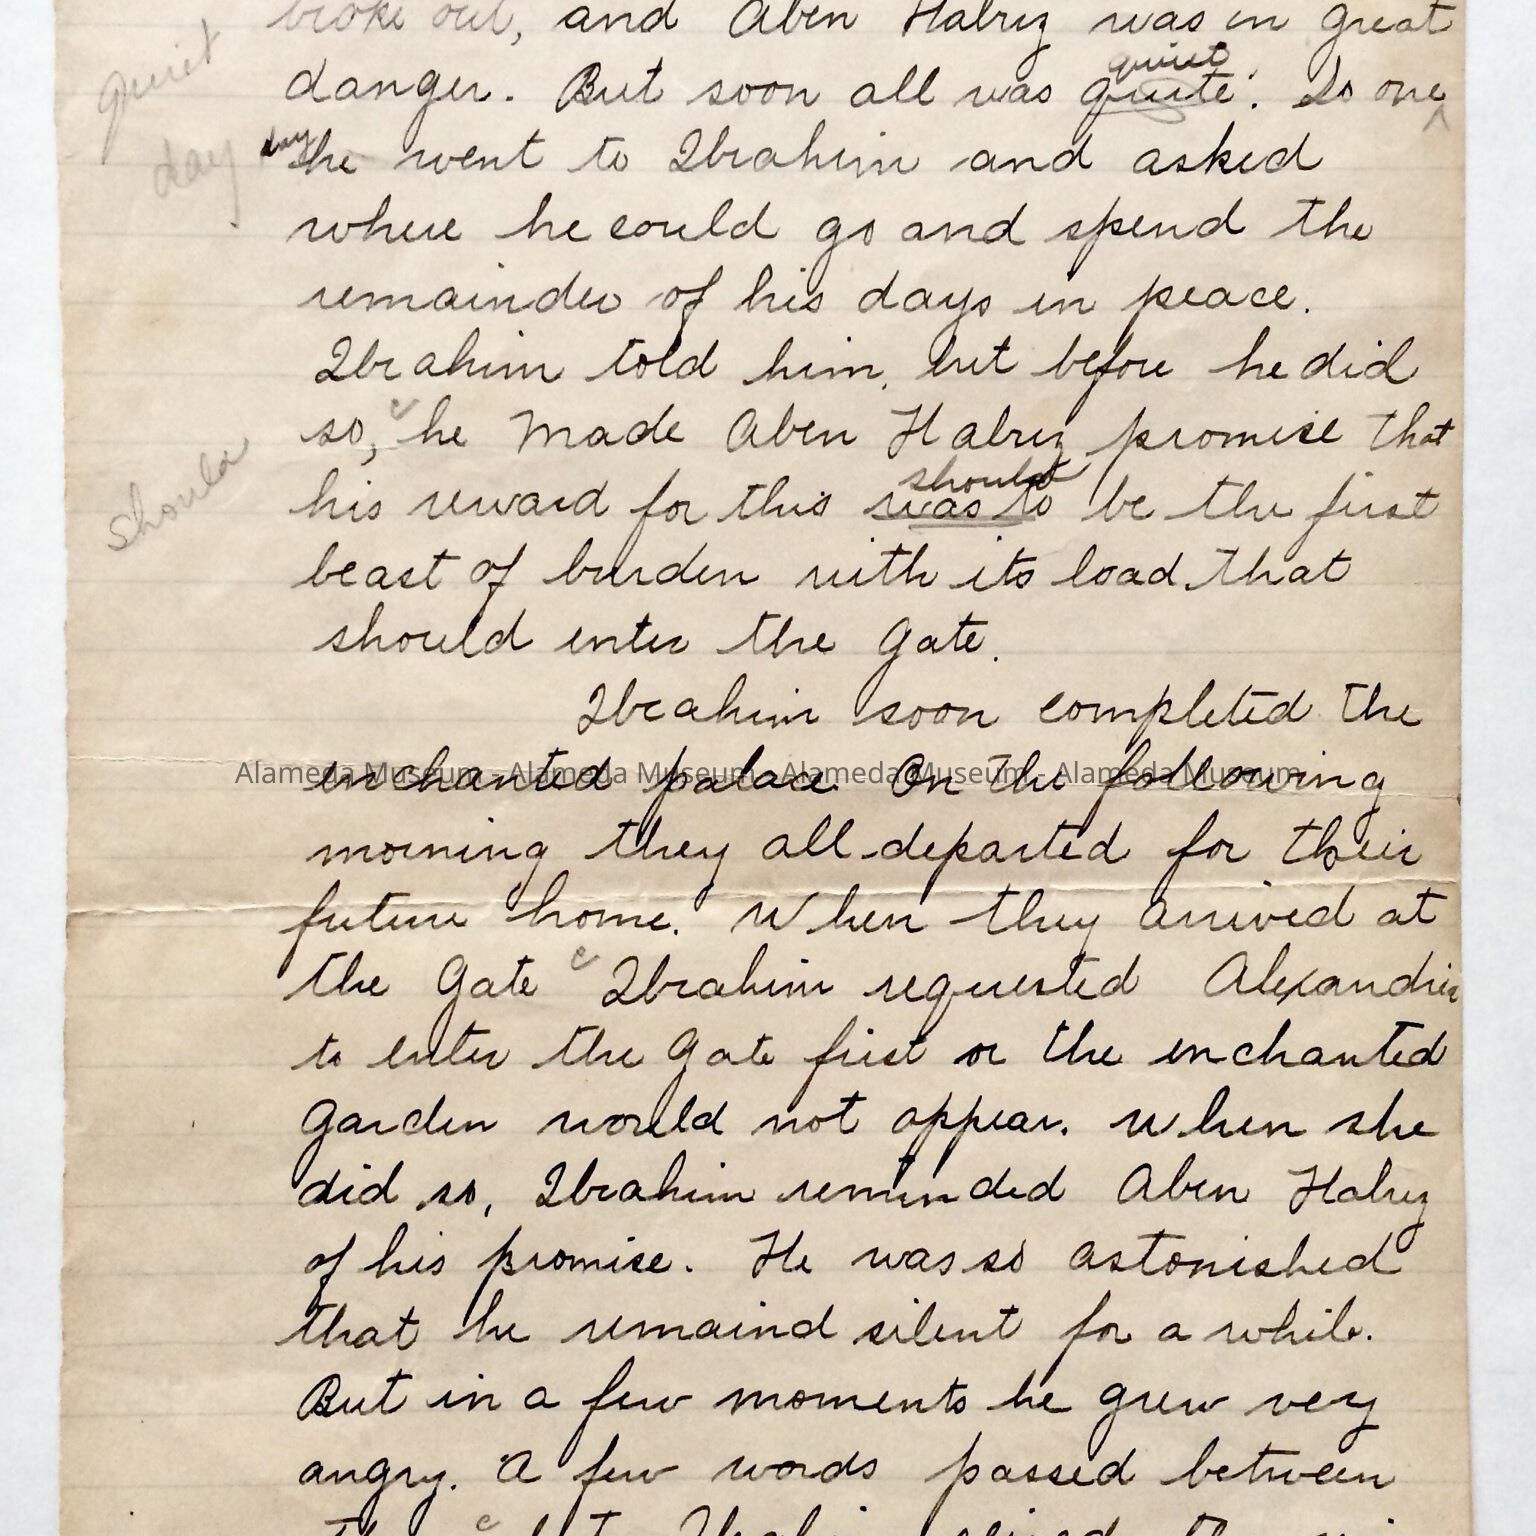 broke out, and Aben Habuz was in great
quiet
quiet
danger. But soon all was quite. So one
day
day he went to Ibrahim and asked
where he could go and spend the
remainder of his days in peace.
Ibrahim told him, but before he did
so, he made Aben Habuz promise that
should
should
his reward for this was to be the first
beast of burden with its load that
should enter the Gate.
Ibrahim soon completed the
enchanted palace. On the following
Alameda Museum - Alameda Museum - Alameda Museum - Alameda Museum
morning they all departed for their
future home. When they arrived at
the Gate Ibrahim requested Alexandria
to enter the Gate first or the enchanted
Garden would not appear. When she
did so, Ibrahim reminded Aben Habuz
of his promise. He was so astonished
that he remaind silent for a while.
But in a few moments he grew very
angry. A few words passed between
Ibrahim